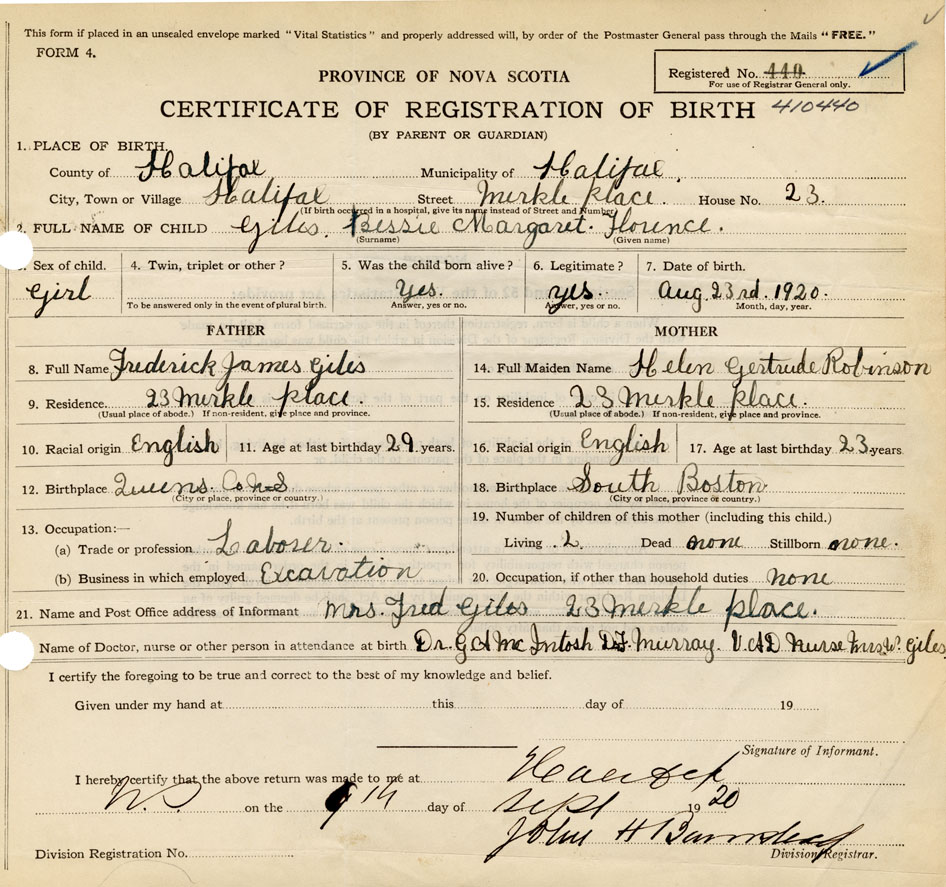 This form if placed in an unsealed envelope marked "Vital Statistics" and properly addressed will, by order of the Postmaster General pass through the Mails "FREE."
FORM 4.
Registered No. 440
For use of Registrar General only.
PROVINCE OF NOVA SCOTIA
CERTIFICATE OF REGISTRATION OF BIRTH 410440
(BY PARENT OR GUARDIAN)
1. PLACE OF BIRTH.
County of Halifax Municipality of Halifax.
City, Town or Village Halifax Street Merkle place. House No. 23.
(If birth occurred in a hospital, give its name instead of Street and Number)
2. FULL NAME OF CHILD Giles. Bessie Margaret. Florence.
(Surname) (Given name)
3. Sex of child. 4. Twin, triplet or other? 5. Was the child born alive? 6. Legitimate? 7. Date of birth.
Girl Yes. yes. Aug. 23rd. 1920.
To be answered only in the event of plural birth. Answer, yes or no. Answer, yes or no. Month, day, year.
FATHER MOTHER
8. Full Name Frederick James Giles 14. Full Maiden Name Helen Gertrude Robinson
9. Residence. 23 Merkle place. 15. Residence 23 Merkle place.
(Usual place of abode.) If non-resident, give place and province. (Usual place of abode.) If non-resident, give place and province.
10. Racial origin English 11. Age at last birthday 29. years. 16. Racial origin English 17. Age at last birthday 23. years
12. Birthplace Queens. Co. N.S 18. Birthplace South Boston
(City or place, province or country.) (City or place, province or country.)
13. Occupation:— 19. Number of children of this mother (including this child.)
(a) Trade or profession Laborer. Living 2. Dead none Stillborn none.
(b) Business in which employed Excavation 20. Occupation, if other than household duties none
21. Name and Post Office address of Informant Mrs. Fred Giles 23 Merkle place.
Name of Doctor, nurse or other person in attendance at birth Dr. G A McIntosh Murray. V.A.D Nurse Mrs W. Giles
I certify the foregoing to be true and correct to the best of my knowledge and belief.
Given under my hand at this day of 19
Signature of Informant.
I hereby certify that the above return was made to me at
N.S on the day of Sept 1920
John H Barnstead
Division Registration No. Division Registrar.